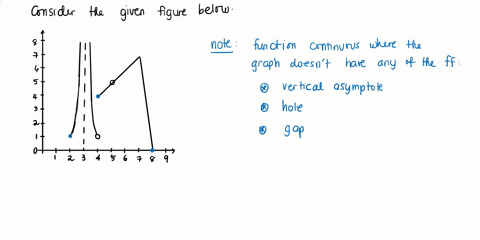 Consider the given figure below.
note: function continuous where the
graph doesn't have any of the ff:
vertical asymptote
hole
gap
8
7
6
5
4
3
2
1
0
1 2 3 4 5 6 7 8 9